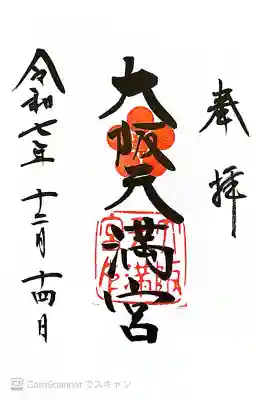 奉拝
大阪天満宮
令和七年 十二月 十四日
CamScanner でスキャン